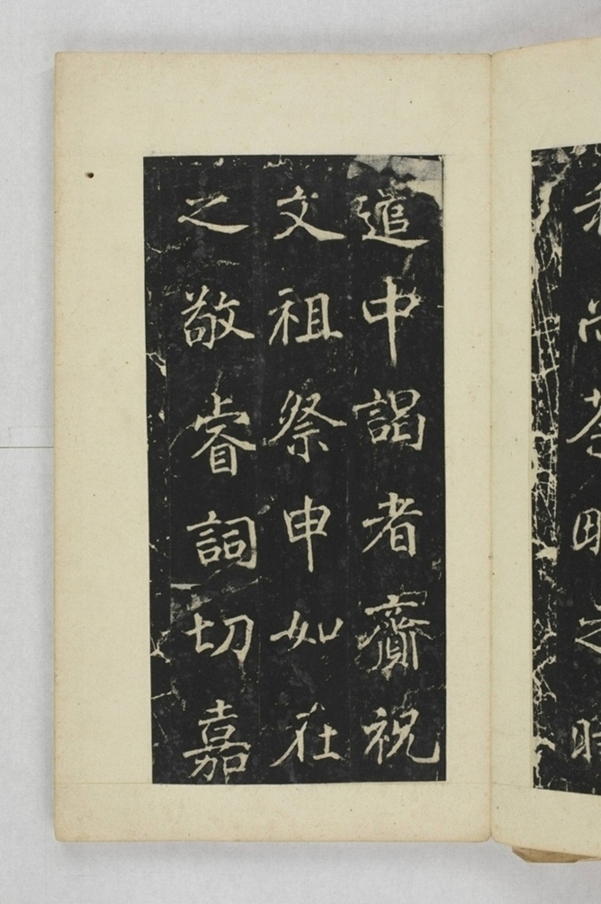 追中謁者齎祝
文祖祭申如在
之敬睿詞切嘉